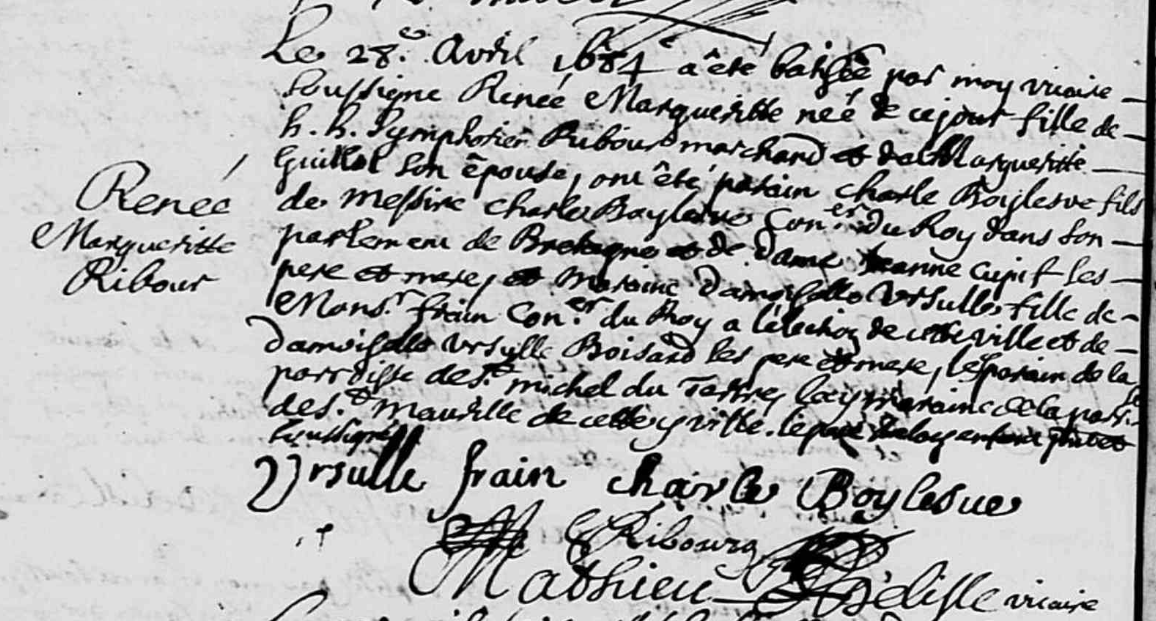 Le 28.e Avril 1684 a été batisée par moy vicaire
soussigné Renée Margueritte née de ce jour fille de
h. h. Symphorien Ribour marchand et de Margueritte
Guillot son épouse, ont été parain charle Boylesve fils
de messire charles Boylesve Con.er du Roy dans son
parlement de Bretagne et de dame Jeanne Cupif ses
pere et mere, et maraine damoiselle Ursulle fille de
Mons.r frain Con.er du Roy a l'élection de cette ville et de
damoiselle Ursulle Boisard ses pere et mere, le parain de la
parroisse de S.t michel du Tertre, la maraine de la parr.
de S.t Maurille de cette ville. le pere
soussignés
Renée
Margueritte
Ribour
Ursulle frain charle Boylesve
S Ribourg
Mathieu Delisle vicaire